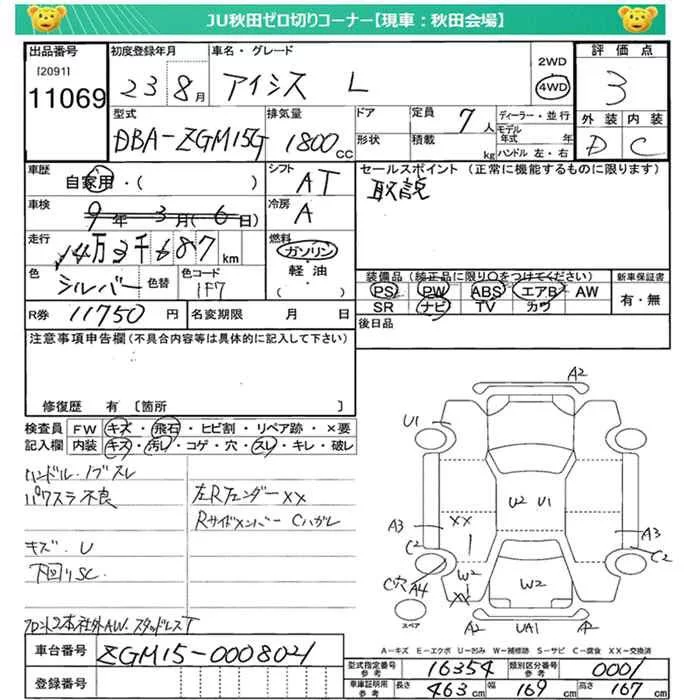 JU秋田ゼロ切りコーナー【現車：秋田会場】
出品番号
[2091]
11069
初度登録年月
23 8月
車名・グレード
アイシス L
2WD
4WD
評価点
3
外装 内装
D C
型式
DBA-ZGM15G
排気量
1800cc
ドア
形状
定員 7人
積載 kg
ディーラー・並行
モデル年式 年
ハンドル 左・右
車歴
自家用・( )
シフト
AT
セールスポイント(正常に機能するものに限ります)
取説
車検
9年3月(6日)
冷房
A
走行
14万3千687km
燃料
ガソリン
軽油
( )
色
シルバー
色替
色コード
1F7
装備品(純正品に限り○をつけてください)
PS PW ABS エアB AW
SR ナビ TV カワ
新車保証書
有・無
R券 11750円
名変期限 月 日
後日品
注意事項申告欄(不具合内容等は具体的に記入して下さい)
修復歴 有〔箇所 〕
検査員 FW キズ・飛石・ヒビ割・リペア跡・×要
記入欄 内装 キズ・汚れ・コゲ・穴・スレ・キレ・破レ
ハンドル.ノブスレ
パワスラ不良
左Rフェンダー××
Rサイドメンバー Cハガレ
キズ.U
下回りSC
フロント2本社外AW.スタッドレスT
A2
U1
U2 U1
A3
××
A3
C2
C2
C穴 A4
W2
××
W2
U2 UA1 A2
スペア
A−キズ E−エクボ U−凹み W−補修跡 S−サビ C−腐食 ××−交換済
車台番号
ZGM15-0008021
登録番号
型式指定番号 参考
16354
類別区分番号 参考
0001
車庫証明用 参考
長さ 463cm 幅 169cm 高さ 167cm